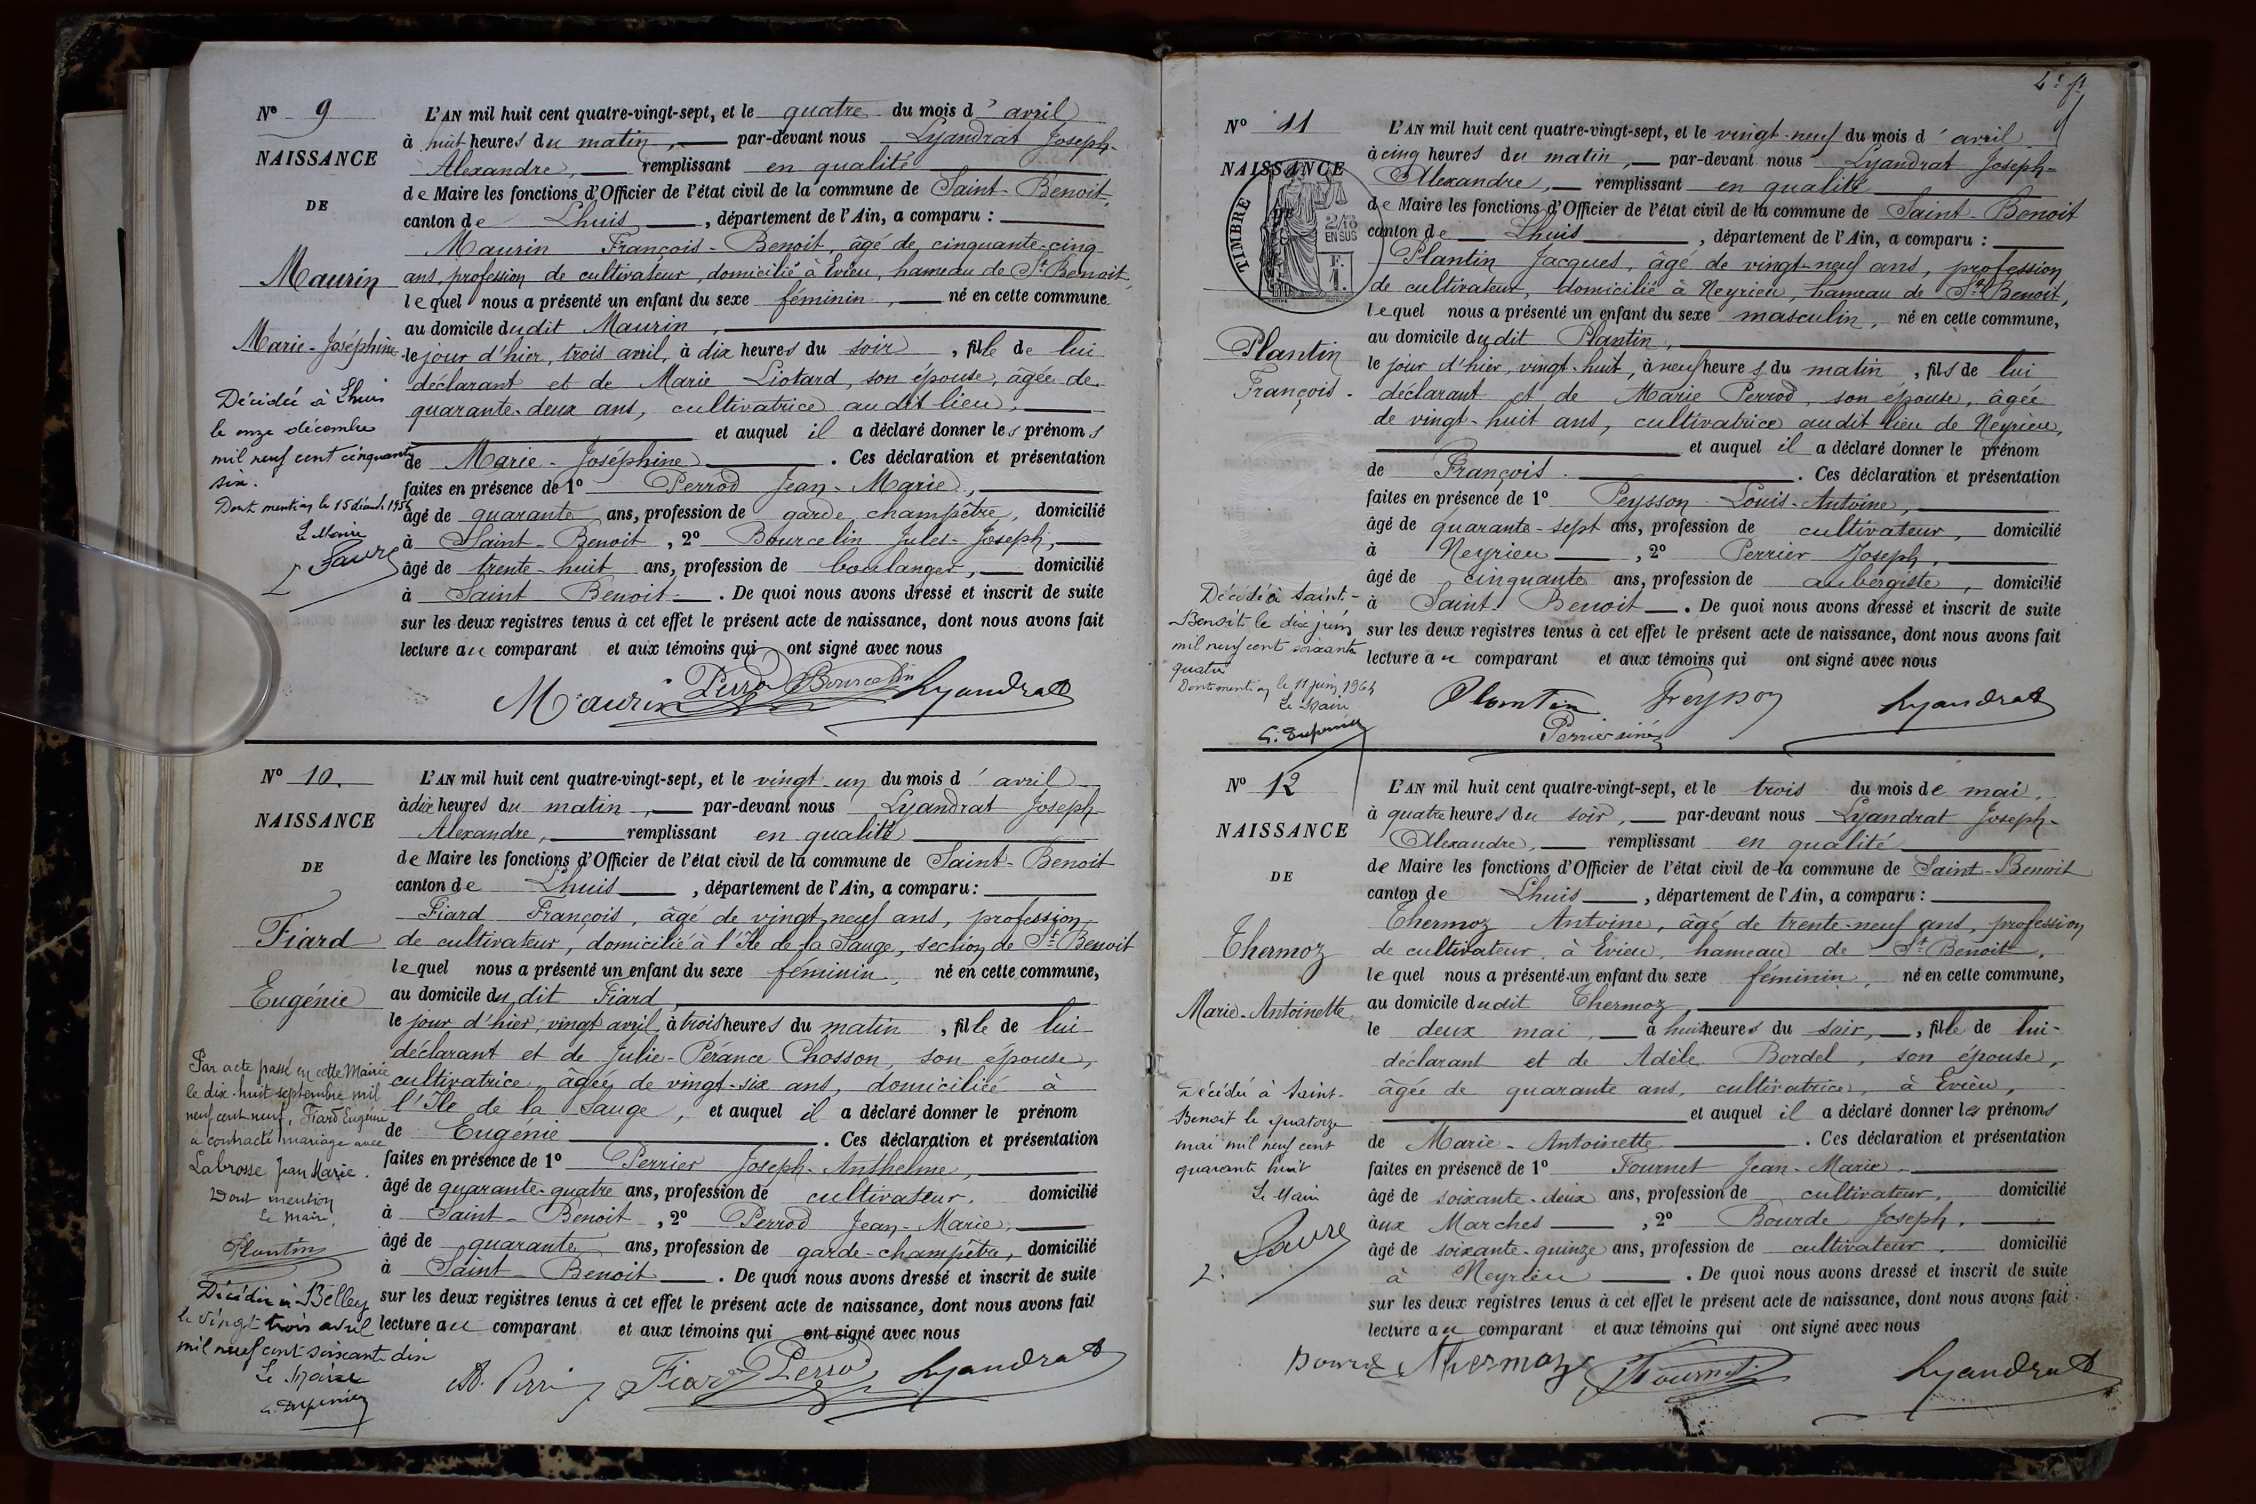 Nº 9
NAISSANCE
DE
Maurin
Marie-Joséphine
Décédée à Lhuis
le onze décembre
mil neuf cent cinquante
six.
Dont mention le 15 décemb. 1956
Le Maire
Faure
L'AN mil huit cent quatre-vingt-sept, et le quatre du mois d'avril
à huit heures du matin, par-devant nous Lyandrat Joseph-
Alexandre, remplissant en qualité
de Maire les fonctions d'Officier de l'état civil de la commune de Saint-Benoit,
canton de Lhuis, département de l'Ain, a comparu :
Maurin François-Benoit, âgé de cinquante-cinq
ans, profession de cultivateur, domicilié à Evieu, hameau de St Benoit,
lequel nous a présenté un enfant du sexe féminin, né en cette commune
au domicile dudit Maurin,
le jour d'hier, trois avril, à dix heures du soir, fille de lui
déclarant et de Marie Liotard, son épouse, âgée de
quarante-deux ans, cultivatrice audit lieu,
et auquel il a déclaré donner les prénoms
de Marie-Joséphine. Ces déclaration et présentation
faites en présence de 1º Perrod Jean-Marie,
âgé de quarante ans, profession de garde champêtre, domicilié
à Saint-Benoit, 2º Bourcelin Jules-Joseph,
âgé de trente-huit ans, profession de boulanger, domicilié
à Saint Benoit. De quoi nous avons dressé et inscrit de suite
sur les deux registres tenus à cet effet le présent acte de naissance, dont nous avons fait
lecture au comparant et aux témoins qui ont signé avec nous
Maurin Perrod Bourcelin Lyandrat
Nº 10.
NAISSANCE
DE
Fiard
Eugénie
Par acte passé en cette Mairie
le dix-huit septembre mil
neuf cent neuf, Fiard Eugénie
a contracté mariage avec
Labrosse Jean Marie.
Dont mention
Le Maire,
Plantin
Décédée à Belley
le vingt trois avril
mil neuf cent soixante dix
Le Maire
L'AN mil huit cent quatre-vingt-sept, et le vingt-un du mois d'avril
à dix heures du matin, par-devant nous Lyandrat Joseph
Alexandre, remplissant en qualité
de Maire les fonctions d'Officier de l'état civil de la commune de Saint-Benoit
canton de Lhuis, département de l'Ain, a comparu :
Fiard François, âgé de vingt neuf ans, profession
de cultivateur, domicilié à l'Ile de la Sauge, section de St Benoit
lequel nous a présenté un enfant du sexe féminin, né en cette commune,
au domicile dudit Fiard,
le jour d'hier, vingt avril, à trois heures du matin, fille de lui
déclarant et de Julie-Pérance Chosson, son épouse,
cultivatrice, âgée de vingt-six ans, domiciliée à
l'Ile de la Sauge, et auquel il a déclaré donner le prénom
de Eugénie. Ces déclaration et présentation
faites en présence de 1º Perrier Joseph-Anthelme,
âgé de quarante-quatre ans, profession de cultivateur, domicilié
à Saint-Benoit, 2º Perrod Jean-Marie,
âgé de quarante ans, profession de garde-champêtre, domicilié
à Saint-Benoit. De quoi nous avons dressé et inscrit de suite
sur les deux registres tenus à cet effet le présent acte de naissance, dont nous avons fait
lecture au comparant et aux témoins qui ont signé avec nous
Fiard Perrod Lyandrat
Nº 11
NAISSANCE
DE
TIMBRE
2/10
EN SUS
Plantin
François.
Décédé à Saint-
Benoît le dix juin
mil neuf cent soixante
quatre
Dont mention le 11 juin 1964
Le Maire
L'AN mil huit cent quatre-vingt-sept, et le vingt-neuf du mois d'avril
à cinq heures du matin, par-devant nous Lyandrat Joseph-
Alexandre, remplissant en qualité
de Maire les fonctions d'Officier de l'état civil de la commune de Saint-Benoit
canton de Lhuis, département de l'Ain, a comparu :
Plantin Jacques, âgé de vingt-neuf ans, profession
de cultivateur, domicilié à Neyrieu, hameau de St Benoit,
lequel nous a présenté un enfant du sexe masculin, né en cette commune,
au domicile dudit Plantin,
le jour d'hier, vingt-huit, à neuf heures du matin, fils de lui
déclarant et de Marie Perrod, son épouse, âgée
de vingt-huit ans, cultivatrice audit lieu de Neyrieu,
et auquel il a déclaré donner le prénom
de François. Ces déclaration et présentation
faites en présence de 1º Peysson Louis-Antoine,
âgé de quarante-sept ans, profession de cultivateur, domicilié
à Neyrieu, 2º Perrier Joseph,
âgé de cinquante ans, profession de aubergiste, domicilié
à Saint-Benoit. De quoi nous avons dressé et inscrit de suite
sur les deux registres tenus à cet effet le présent acte de naissance, dont nous avons fait
lecture au comparant et aux témoins qui ont signé avec nous
Plantin Peysson Lyandrat
Perrier
Nº 12
NAISSANCE
DE
Thermoz
Marie-Antoinette
Décédée à Saint-
Benoit le quatorze
mai mil neuf cent
quarante huit
Le Maire
Faure
L'AN mil huit cent quatre-vingt-sept, et le trois du mois de mai,
à quatre heures du soir, par-devant nous Lyandrat Joseph-
Alexandre, remplissant en qualité
de Maire les fonctions d'Officier de l'état civil de la commune de Saint-Benoit
canton de Lhuis, département de l'Ain, a comparu :
Thermoz Antoine, âgé de trente-neuf ans, profession
de cultivateur, à Evieu, hameau de St Benoit,
lequel nous a présenté un enfant du sexe féminin, né en cette commune,
au domicile dudit Thermoz,
le deux mai, à huit heures du soir, fille de lui-
déclarant et de Adèle Bordel, son épouse,
âgée de quarante ans, cultivatrice, à Evieu,
et auquel il a déclaré donner les prénoms
de Marie-Antoinette. Ces déclaration et présentation
faites en présence de 1º Fournet Jean-Marie,
âgé de soixante-deux ans, profession de cultivateur, domicilié
aux Marches, 2º Bourde Joseph,
âgé de soixante-quinze ans, profession de cultivateur, domicilié
à Neyrieu. De quoi nous avons dressé et inscrit de suite
sur les deux registres tenus à cet effet le présent acte de naissance, dont nous avons fait
lecture au comparant et aux témoins qui ont signé avec nous
Bourde Thermoz Fournet Lyandrat